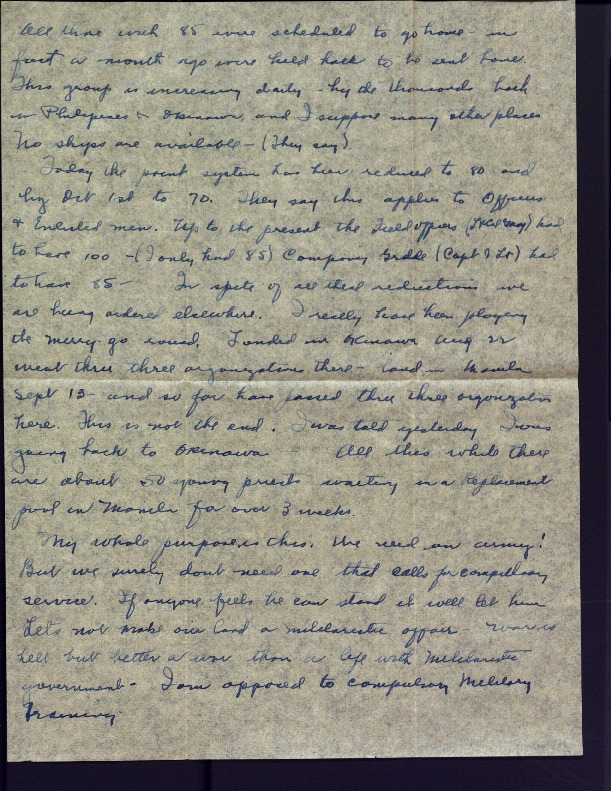 All those with 85 were scheduled to go home - in
fact a month ago were held back to be sent home.
This group is increasing daily - by the thousands back
in Philipines & Okinawa, and I suppose many other places
No ships are available - (They say).
Today the point system has been reduced to 80 and
by Oct 1st to 70. They say this applies to Officers
& Enlisted men. Up to the present the Field officers (Lt Col Maj) had
to have 100 - (I only had 85) Company Grade (Capt & Lt) had
to have 85 - In spite of all these reductions we
are being ordered elsewhere. I really have been playing
the merry-go round. Landed in Okinawa Aug 22
went thru three organizations there - land in Manila
Sept 13 - and so far have passed thru three organization
here. This is not the end. I was told yesterday I was
going back to Okinawa All this while there
are about 50 young priests waiting in a Replacement
pool in Manila for over 3 weeks.
My whole purpose is this. We need an army!
But we surely dont need one that calls for compulsory
service. If anyone feels he can stand it well let him
Lets not make our land a militaristic affair - War is
hell but better a war than a life with Militaristic
government - I am opposed to compulsory Military
Training.